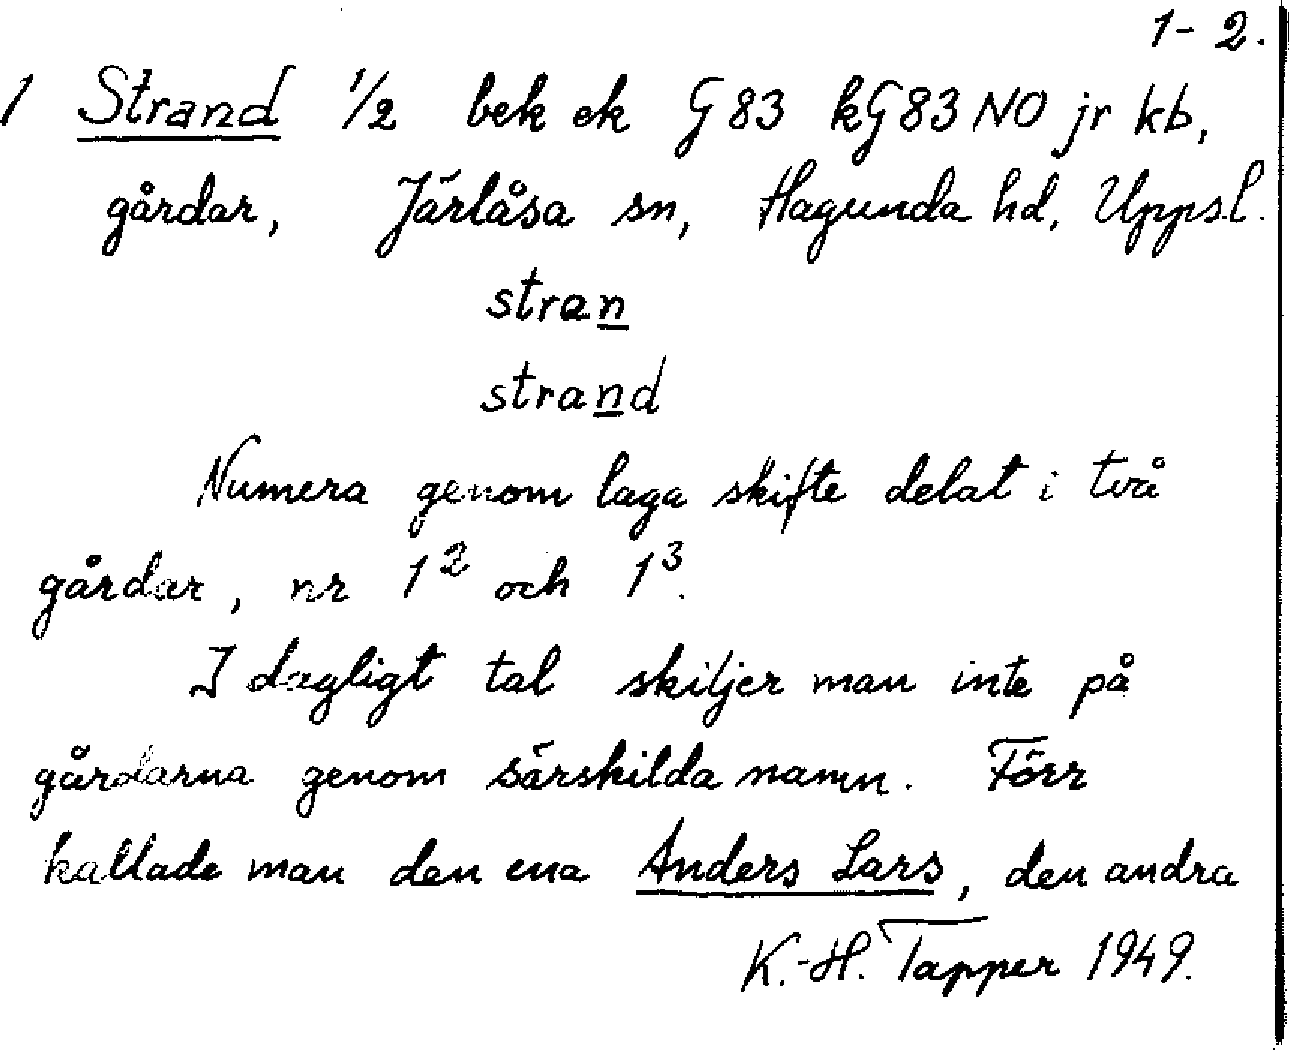 1-2.
1 Strand 1/2 bek ek G 83 kG83 NO jr kb,
gårdar, Järlåsa sn, Hagunda hd, Uppsl.
stran
strand
Numera genom laga skifte delat i två
gårdar, nr 1² och 1³.
I dagligt tal skiljer man inte på
gårdarna genom särskilda namn. Förr
kallade man den ena Anders Lars, den andra
K.-H. Tapper 1949.